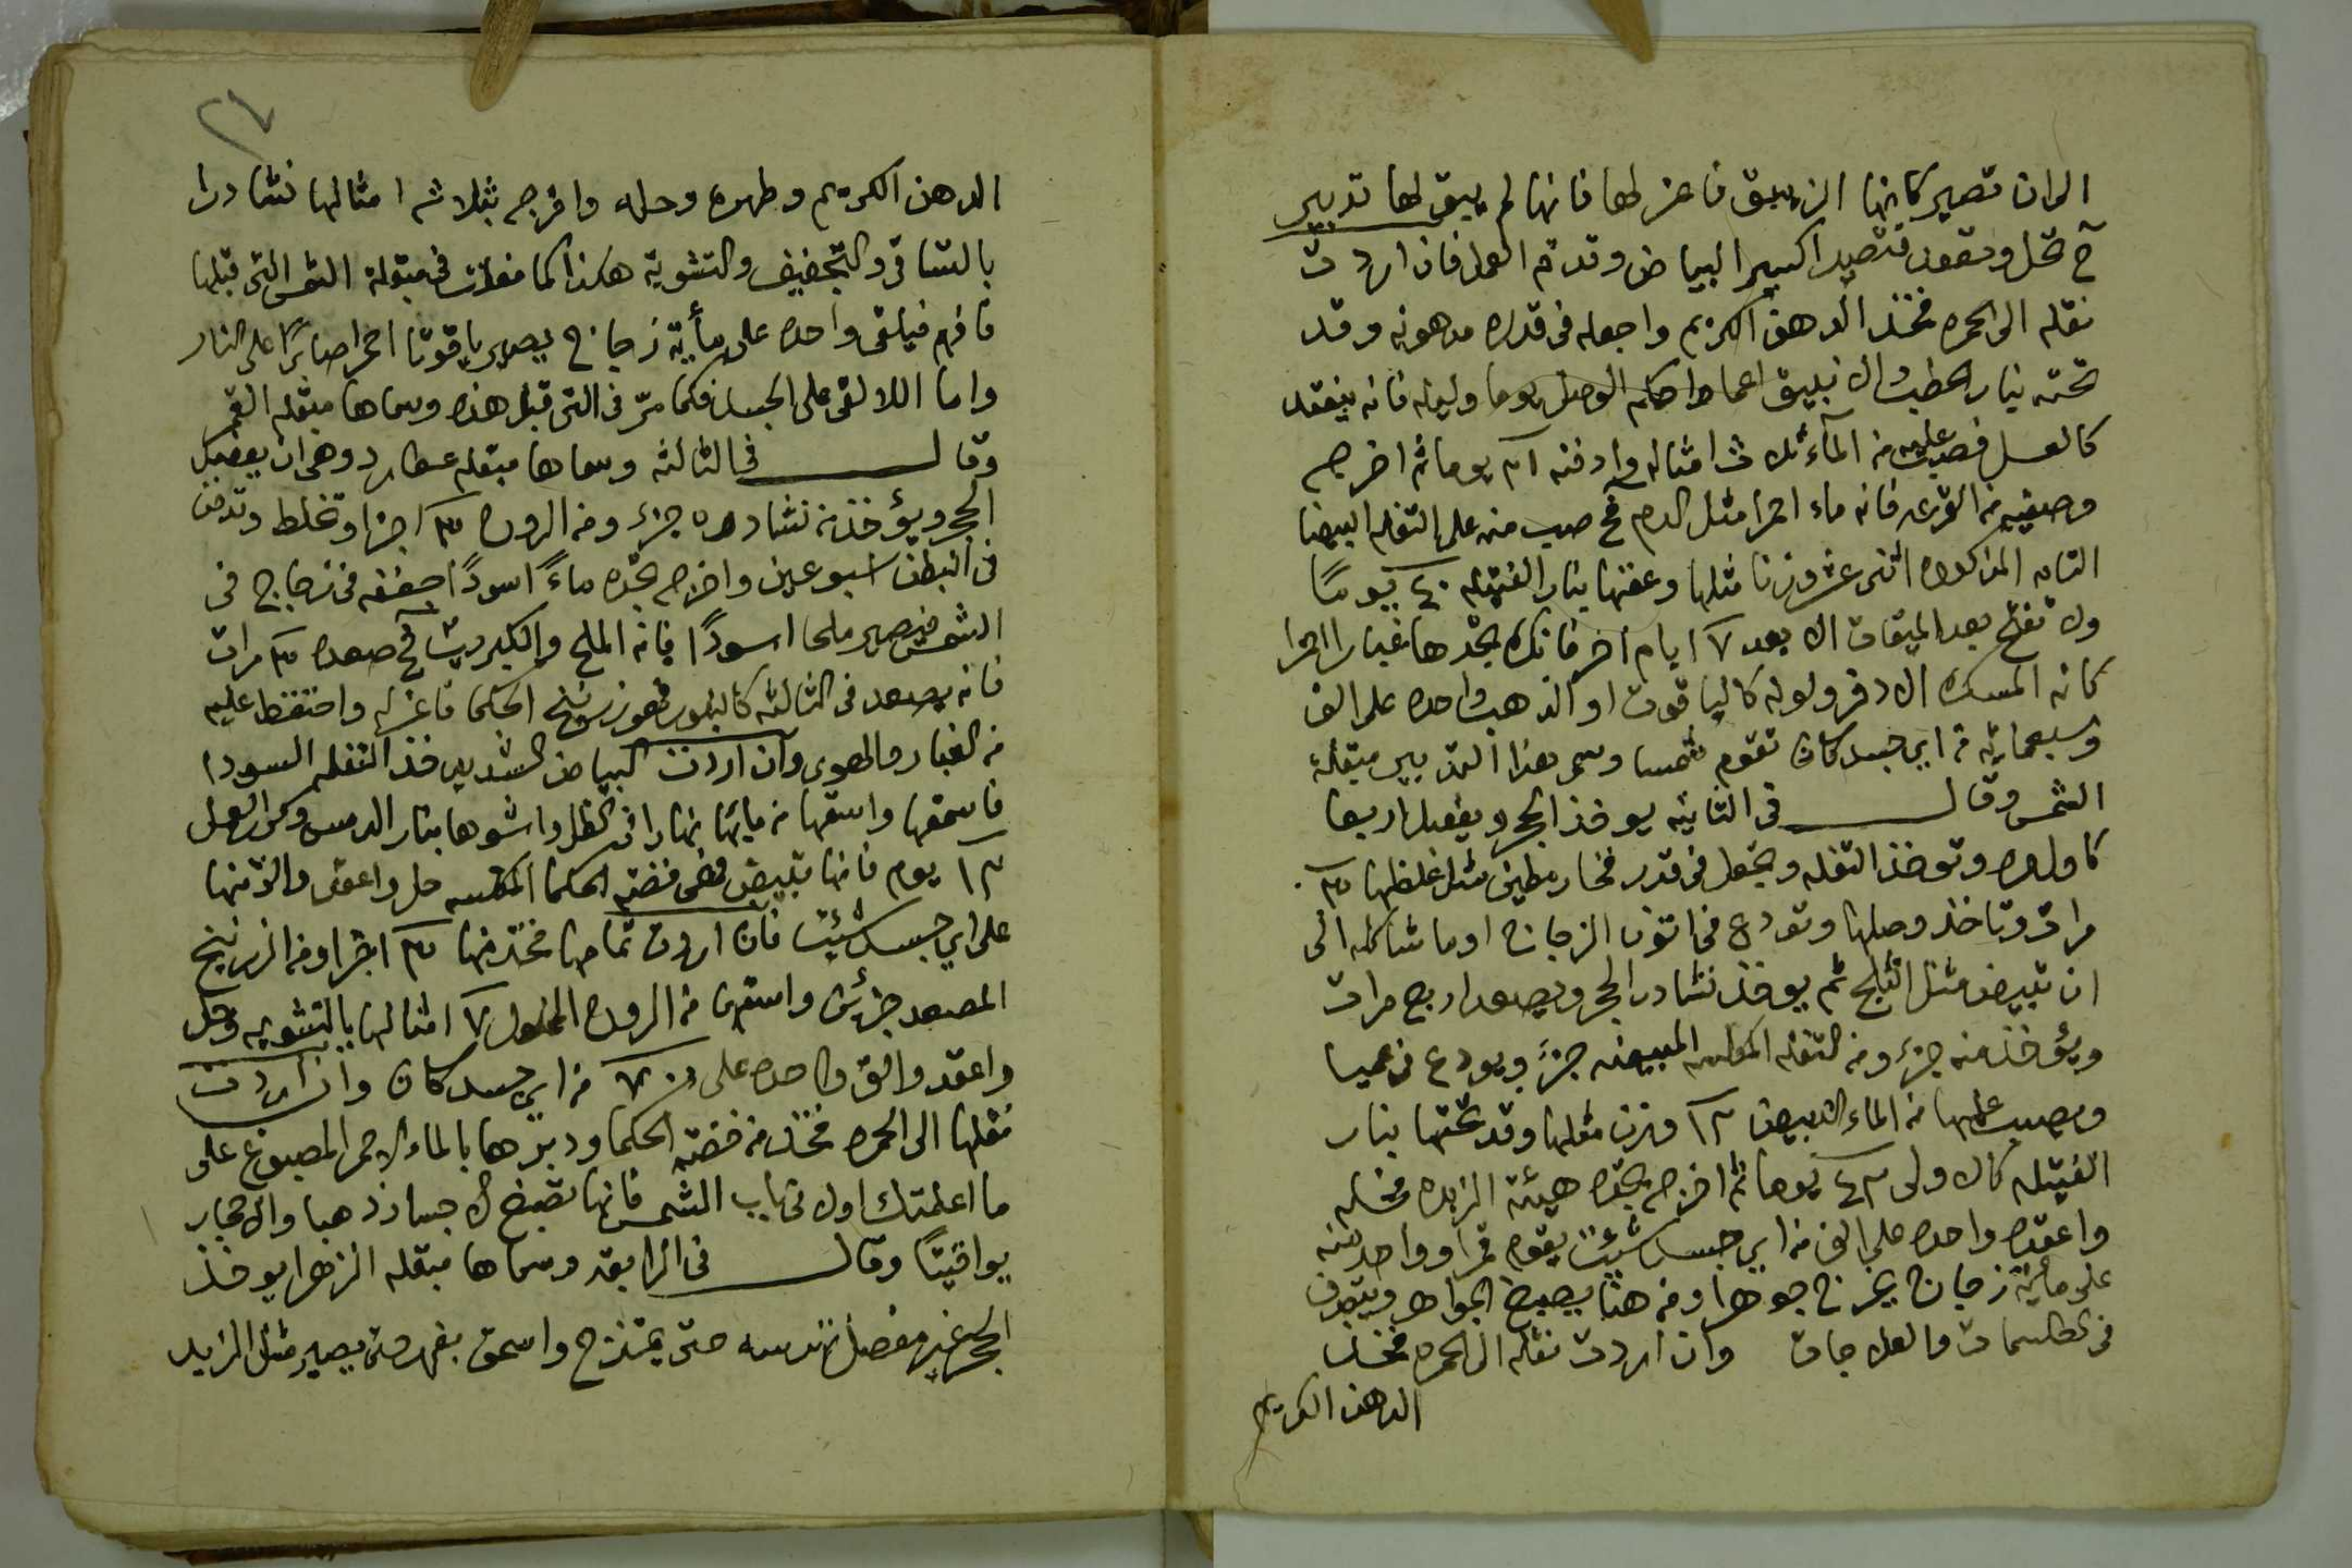 الى ان تصير كانها الزيبق فاعزلها فانها لم يبق لها تدبير
ح تحل وتعقد فتصير اكسير البياض وقد تم العمل فان اردت
نقله الى الحمره فخذ الدهن الكريم واجعله فى قدره مدهونه وقد
تحته بنار الحطب والانبيق اعما واحكم الوصل يوما وليله فانه ينعقد
كالعسل فصب عليه من المآء ثلاث امثاله وادفنه ٢١ يوما ثم اخرجه
وصفيه من القرعه فانه ماء احمرا مثل الدم فح صب منه على التفله البيضا
التامه المذكوره اثنى عشر وزنا مثلها وعفنها بنار الفتيله ٤٠ يومًا
ولا تفتح بعد الميقات الا بعد ٧ ايام اخر فانك تجدها غبارا احمرا
كانه المسك الادفر ولونه كالياقوت او الذهب واحده على الف
وسبعمايه من اي جسد كان تقوم شمسا وسمى هذا التدبير مبتقلة
الشمس وقال فى الثانيه يوخذ الحجر ويفصل اربعا
كاوله وتوخذ التفله وتجعل فى قدر فخار مطين مثل غلظها ٣
مرات وتاخذ وصلها وتودع فى اتون الزجاج او ما شاكله الى
ان تبيض مثل الثلج ثم يوخذ نشادر الحجر ويصعد اربع مرات
ويؤخذ منه جزء ومن التفله المكلسه المبيضه جزءً ويودع فى عميا
ويصب عليها من الماء البيض ١٢ وزن مثلها وقد تحتها بنار
الفتيله كالاولى ٤٢ يوما ثم اخرجه تجده هيئة الزبده فحله
واعقده واحده على الف من اي جسد شئت يقوم قمرا وواحد منه
على ماية زجاج يخرج جوهرا ومن هنا يصبغ الجواهر ويتصرف
فى الطلسمات والعلاجات وان اردت نقله الى الحمره فخذ
الدهن الكريم
٢٦
الدهن الكريم وطهره وحله وامزجه بثلاثه امثالها نشادرا
بالتساقى والتجفيف والتشوية هكذا كما فعلت فى مبتقلة الشمس التى قبلها
فافهم فيلقى واحده على مأية زجاج يصير ياقوتا احمرا صابرًا على النار
واما اللالقى على الجسد فكما مرّ فى التى قبل هذه وسماها مبتقله القمر
وقال فى الثالثه وسماها مبتقله عطارد وهى ان يفصل
الحجر ويؤخذ من نشادره جزء ومن الروح ٣ اجزا وتخلط وتدفن
فى البطن اسبوعين واخرجه تجده ماءً اسودًا جففه فى زجاج فى
الشمس فيصير ملحا اسودًا فانه الملح والكبريت فح صعده ٣ مرات
فانه يصعد فى الثالثه كالبلور فهو زرنيخ الحكما فاعزله واحتفظ عليه
من الغبار والهوى وان اردت البياض الشديد فخذ التفله السودا
فاسحقها واسقها من مايها نهارا فى الظل واشوها بنار الدمس وكرر العمل
١٢ يوم فانها تبيض فهى فضة الحكما المكلسه حل واعقد والق منها
على اي جسد شئت فان اردت تمامها فخذ منها ٣ اجزا ومن الزرنيخ
المصعد جزئين واسقهن من الروح المحلول ٧ امثالها بالتشويه وحل
واعقد والق واحده على ٧٠ من اي جسد كان وان اردت
نقلها الى الحمره فخذ من فضة الحكما ودبرها بالماء الاحمر المصبوغ على
ما اعلمتك اولا فى باب الشمس فانها تصبغ الاجساد ذهبا والاحجار
يواقيتًا وقال فى الرابعة وسماها مبتقله الزهرا يوخذ
الحجر غير مفصل حتى يمتزج واسحق بفهر حتى يصير مثل الزبد